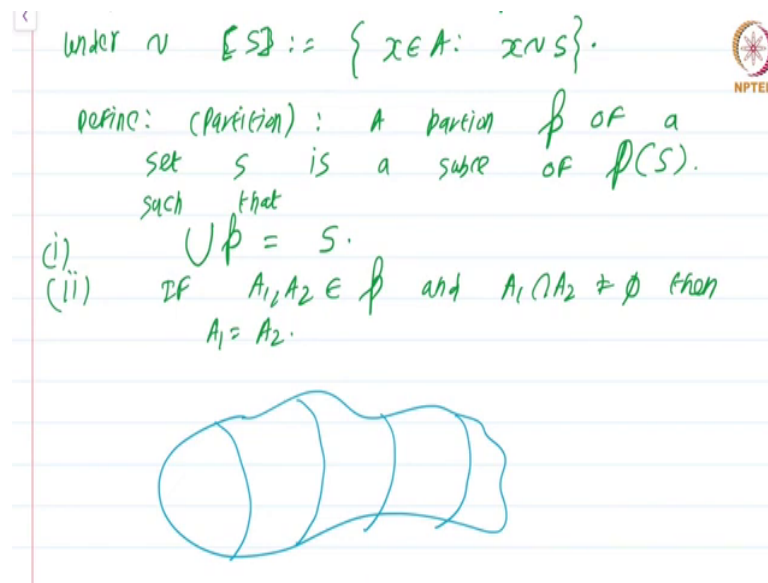 under ~ [S] := { x ∈ A : x ~ S }.
NPTEL
Define: (Partition) : A partion p of a
set S is a subse of P(S).
such that
(i) ∪p = S.
(ii) If A₁, A₂ ∈ p and A₁ ∩ A₂ ≠ ∅ then
A₁ = A₂.